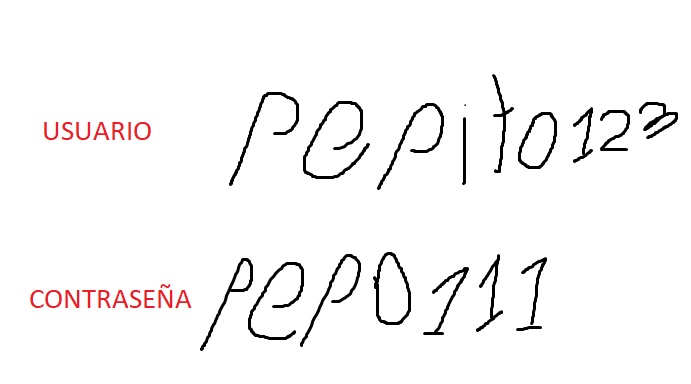 USUARIO pepito123
CONTRASEÑA pepo111